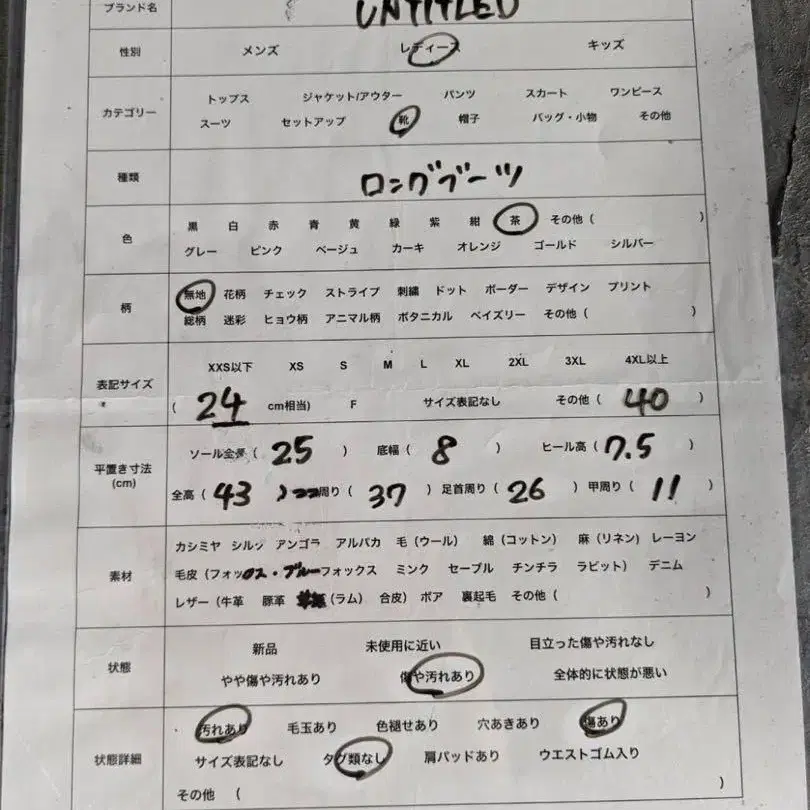 ブランド名 UNTITLED
性別 メンズ レディース キッズ
カテゴリー トップス ジャケット/アウター パンツ スカート ワンピース
スーツ セットアップ 靴 帽子 バッグ・小物 その他
種類 ロングブーツ
色 黒 白 赤 青 黄 緑 紫 紺 茶 その他 ( )
グレー ピンク ベージュ カーキ オレンジ ゴールド シルバー
柄 無地 花柄 チェック ストライプ 刺繍 ドット ボーダー デザイン プリント
総柄 迷彩 ヒョウ柄 アニマル柄 ボタニカル ペイズリー その他 ( )
表記サイズ XXS以下 XS S M L XL 2XL 3XL 4XL以上
( 24 cm相当) F サイズ表記なし その他 ( 40 )
平置き寸法 (cm) ソール全長 ( 25 ) 底幅 ( 8 ) ヒール高 ( 7.5 )
全高 ( 43 ) 周り ( 37 ) 足首周り ( 26 ) 甲周り ( 11 )
素材 カシミヤ シルク アンゴラ アルパカ 毛 (ウール) 綿 (コットン) 麻 (リネン) レーヨン
毛皮 (フォックス・ブルーフォックス ミンク セーブル チンチラ ラビット) デニム
レザー (牛革 豚革 (ラム) 合皮) ボア 裏起毛 その他 ( )
状態 新品 未使用に近い 目立った傷や汚れなし
やや傷や汚れあり 傷や汚れあり 全体的に状態が悪い
状態詳細 汚れあり 毛玉あり 色褪せあり 穴あきあり 傷あり
サイズ表記なし タグ類なし 肩パッドあり ウエストゴム入り
その他 ( )